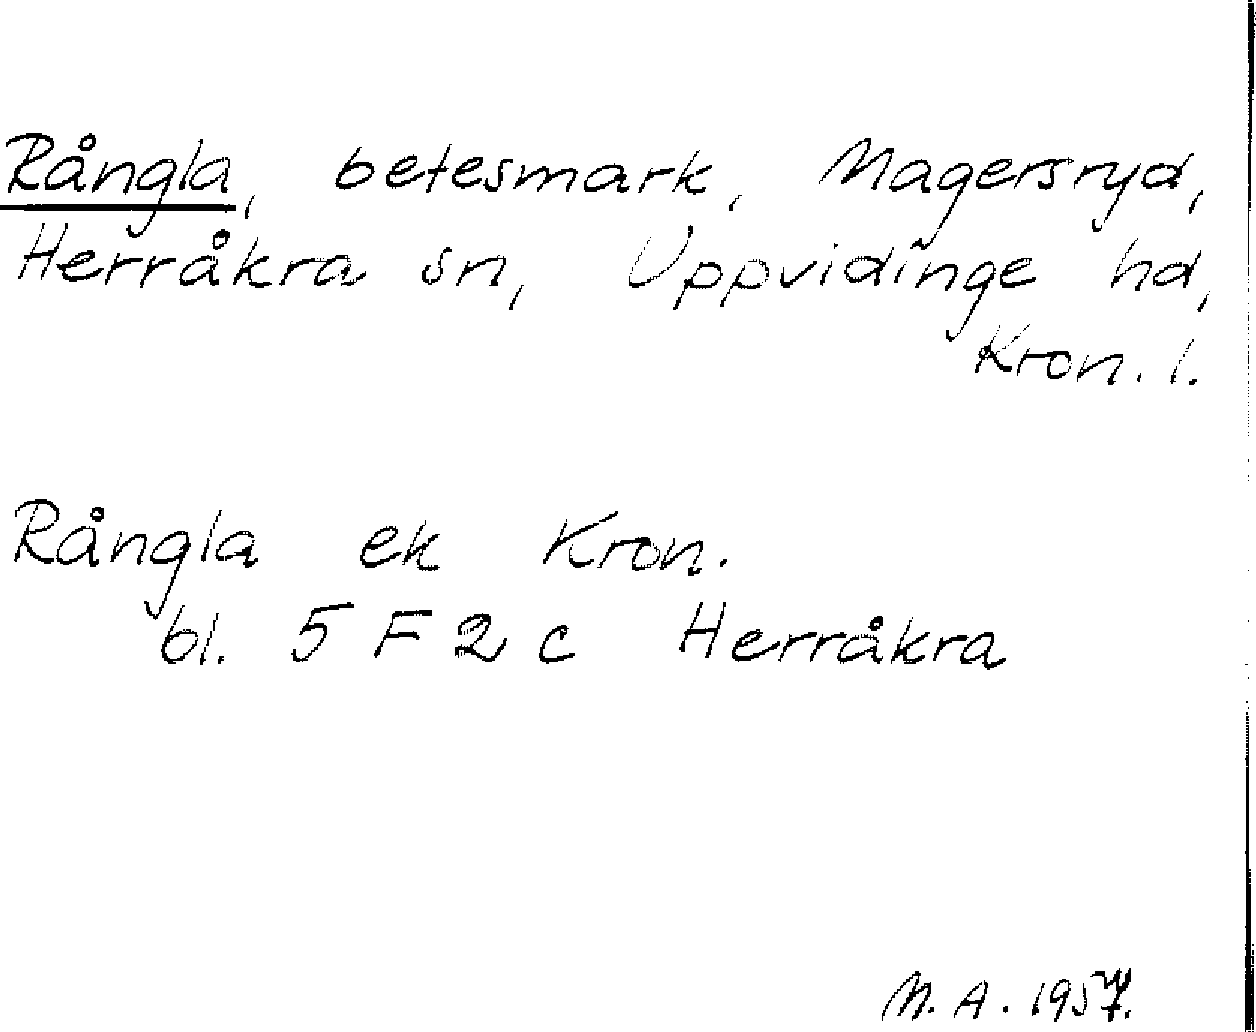 Rångla, betesmark, Magersryd,
Herråkra sn, Uppvidinge hd,
Kron. l.
Rångla ek Kron.
bl. 5 F 2 c Herråkra
M. A. 1957.